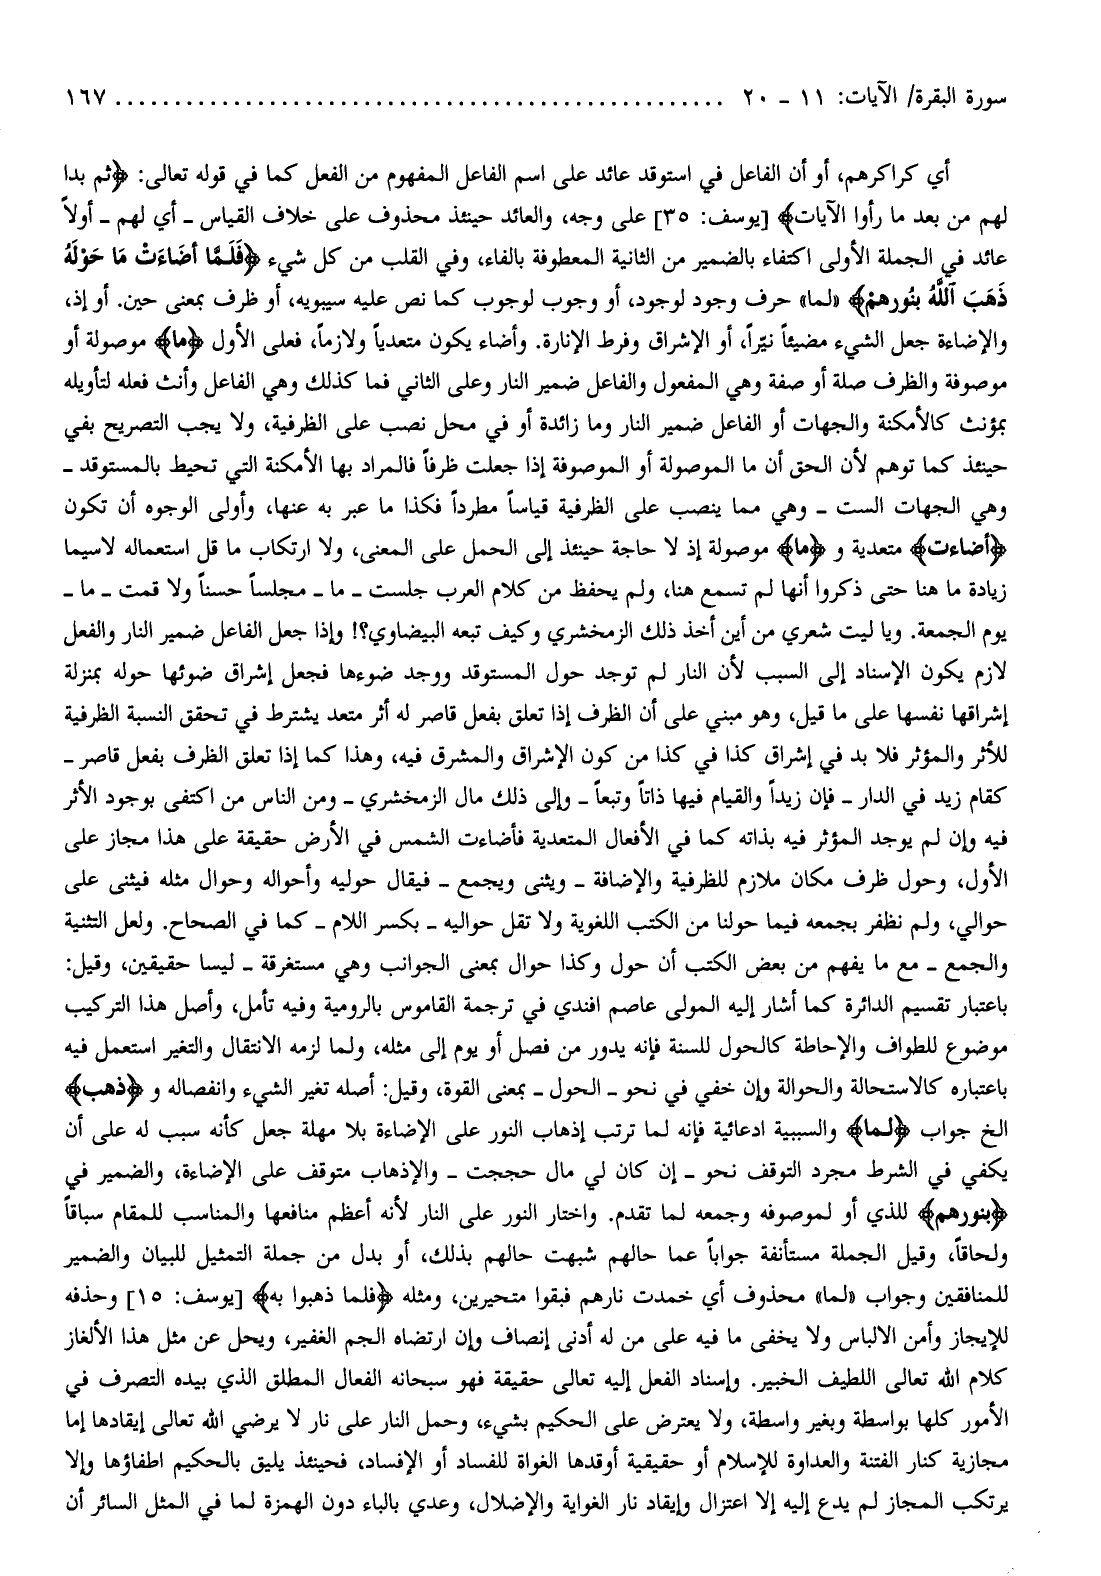 سورة البقرة/ الآيات: ١١ ـ ٢٠ ................................................... ١٦٧
أي كراكرهم، أو أن الفاعل في استوقد عائد على اسم الفاعل المفهوم من الفعل كما في قوله تعالى: ﴿ثم بدا
لهم من بعد ما رأوا الآيات﴾ [يوسف: ٣٥] على وجه، والعائد حينئذ محذوف على خلاف القياس ـ أي لهم ـ أولاً
عائد في الجملة الأولى اكتفاء بالضمير من الثانية المعطوفة بالفاء، وفي القلب من كل شيء ﴿فَلَمَّا أضَاءَتْ مَا حَوْلَهُ
ذَهَبَ ٱللَّهُ بنُورهمْ﴾ «لما» حرف وجود لوجود، أو وجوب لوجوب كما نص عليه سيبويه، أو ظرف بمعنى حين. أو إذ،
والإضاءة جعل الشيء مضيئاً نيّراً، أو الإشراق وفرط الإنارة. وأضاء يكون متعدياً ولازماً، فعلى الأول ﴿ما﴾ موصولة أو
موصوفة والظرف صلة أو صفة وهي المفعول والفاعل ضمير النار وعلى الثاني فما كذلك وهي الفاعل وأنث فعله لتأويله
بمؤنث كالأمكنة والجهات أو الفاعل ضمير النار وما زائدة أو في محل نصب على الظرفية، ولا يجب التصريح بفي
حينئذ كما توهم لأن الحق أن ما الموصولة أو الموصوفة إذا جعلت ظرفاً فالمراد بها الأمكنة التي تحيط بالمستوقد ـ
وهي الجهات الست ـ وهي مما ينصب على الظرفية قياساً مطرداً فكذا ما عبر به عنها، وأولى الوجوه أن تكون
﴿أضاءت﴾ متعدية و ﴿ما﴾ موصولة إذ لا حاجة حينئذ إلى الحمل على المعنى، ولا ارتكاب ما قل استعماله لاسيما
زيادة ما هنا حتى ذكروا أنها لم تسمع هنا، ولم يحفظ من كلام العرب جلست ـ ما ـ مجلساً حسناً ولا قمت ـ ما ـ
يوم الجمعة. ويا ليت شعري من أين أخذ ذلك الزمخشري وكيف تبعه البيضاوي؟! وإذا جعل الفاعل ضمير النار والفعل
لازم يكون الإسناد إلى السبب لأن النار لم توجد حول المستوقد ووجد ضوءها فجعل إشراق ضوئها حوله بمنزلة
إشراقها نفسها على ما قيل، وهو مبني على أن الظرف إذا تعلق بفعل قاصر له أثر متعد يشترط في تحقق النسبة الظرفية
للأثر والمؤثر فلا بد في إشراق كذا في كذا من كون الإشراق والمشرق فيه، وهذا كما إذا تعلق الظرف بفعل قاصر ـ
كقام زيد في الدار ـ فإن زيداً والقيام فيها ذاتاً وتبعاً ـ وإلى ذلك مال الزمخشري ـ ومن الناس من اكتفى بوجود الأثر
فيه وإن لم يوجد المؤثر فيه بذاته كما في الأفعال المتعدية فأضاءت الشمس في الأرض حقيقة على هذا مجاز على
الأول، وحول ظرف مكان ملازم للظرفية والإضافة ـ ويثنى ويجمع ـ فيقال حوليه وأحواله وحوال مثله فيثنى على
حوالي، ولم نظفر بجمعه فيما حولنا من الكتب اللغوية ولا تقل حواليه ـ بكسر اللام ـ كما في الصحاح. ولعل التثنية
والجمع ـ مع ما يفهم من بعض الكتب أن حول وكذا حوال بمعنى الجوانب وهي مستغرقة ـ ليسا حقيقين، وقيل:
باعتبار تقسيم الدائرة كما أشار إليه المولى عاصم افندي في ترجمة القاموس بالرومية وفيه تأمل، وأصل هذا التركيب
موضوع للطواف والإحاطة كالحول للسنة فإنه يدور من فصل أو يوم إلى مثله، ولما لزمه الانتقال والتغير استعمل فيه
باعتباره كالاستحالة والحوالة وإن خفي في نحو ـ الحول ـ بمعنى القوة، وقيل: أصله تغير الشيء وانفصاله و ﴿ذهب﴾
الخ جواب ﴿لما﴾ والسببية ادعائية فإنه لما ترتب إذهاب النور على الإضاءة بلا مهلة جعل كأنه سبب له على أن
يكفي في الشرط مجرد التوقف نحو ـ إن كان لي مال حججت ـ والإذهاب متوقف على الإضاءة، والضمير في
﴿بنورهم﴾ للذي أو لموصوفه وجمعه لما تقدم. واختار النور على النار لأنه أعظم منافعها والمناسب للمقام سباقاً
ولحاقاً، وقيل الجملة مستأنفة جواباً عما حالهم شبهت حالهم بذلك، أو بدل من جملة التمثيل للبيان والضمير
للمنافقين وجواب «لما» محذوف أي خمدت نارهم فبقوا متحيرين، ومثله ﴿فلما ذهبوا به﴾ [يوسف: ١٥] وحذفه
للإيجاز وأمن الالباس ولا يخفى ما فيه على من له أدنى إنصاف وإن ارتضاه الجم الغفير، ويحل عن مثل هذا الألغاز
كلام الله تعالى اللطيف الخبير. وإسناد الفعل إليه تعالى حقيقة فهو سبحانه الفعال المطلق الذي بيده التصرف في
الأمور كلها بواسطة وبغير واسطة، ولا يعترض على الحكيم بشيء، وحمل النار على نار لا يرضي الله تعالى إيقادها إما
مجازية كنار الفتنة والعداوة للإسلام أو حقيقية أوقدها الغواة للفساد أو الإفساد، فحينئذ يليق بالحكيم اطفاؤها وإلا
يرتكب المجاز لم يدع إليه إلا اعتزال وإيقاد نار الغواية والإضلال، وعدي بالباء دون الهمزة لما في المثل السائر أن